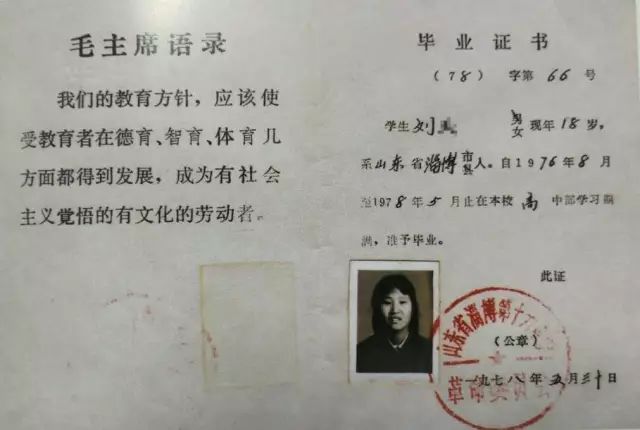 毛主席语录
我们的教育方针，应该使
受教育者在德育、智育、体育几
方面都得到发展，成为有社会
主义觉悟的有文化的劳动者。
毕业证书
（78）字第66号
学生刘 男女现年18岁，
系山东省淄博市县人。自1976年8月
至1978年5月止在本校高中部学习期
满，准予毕业。
此证
山东省淄博第十
（公章）
一九七八年五月三十日